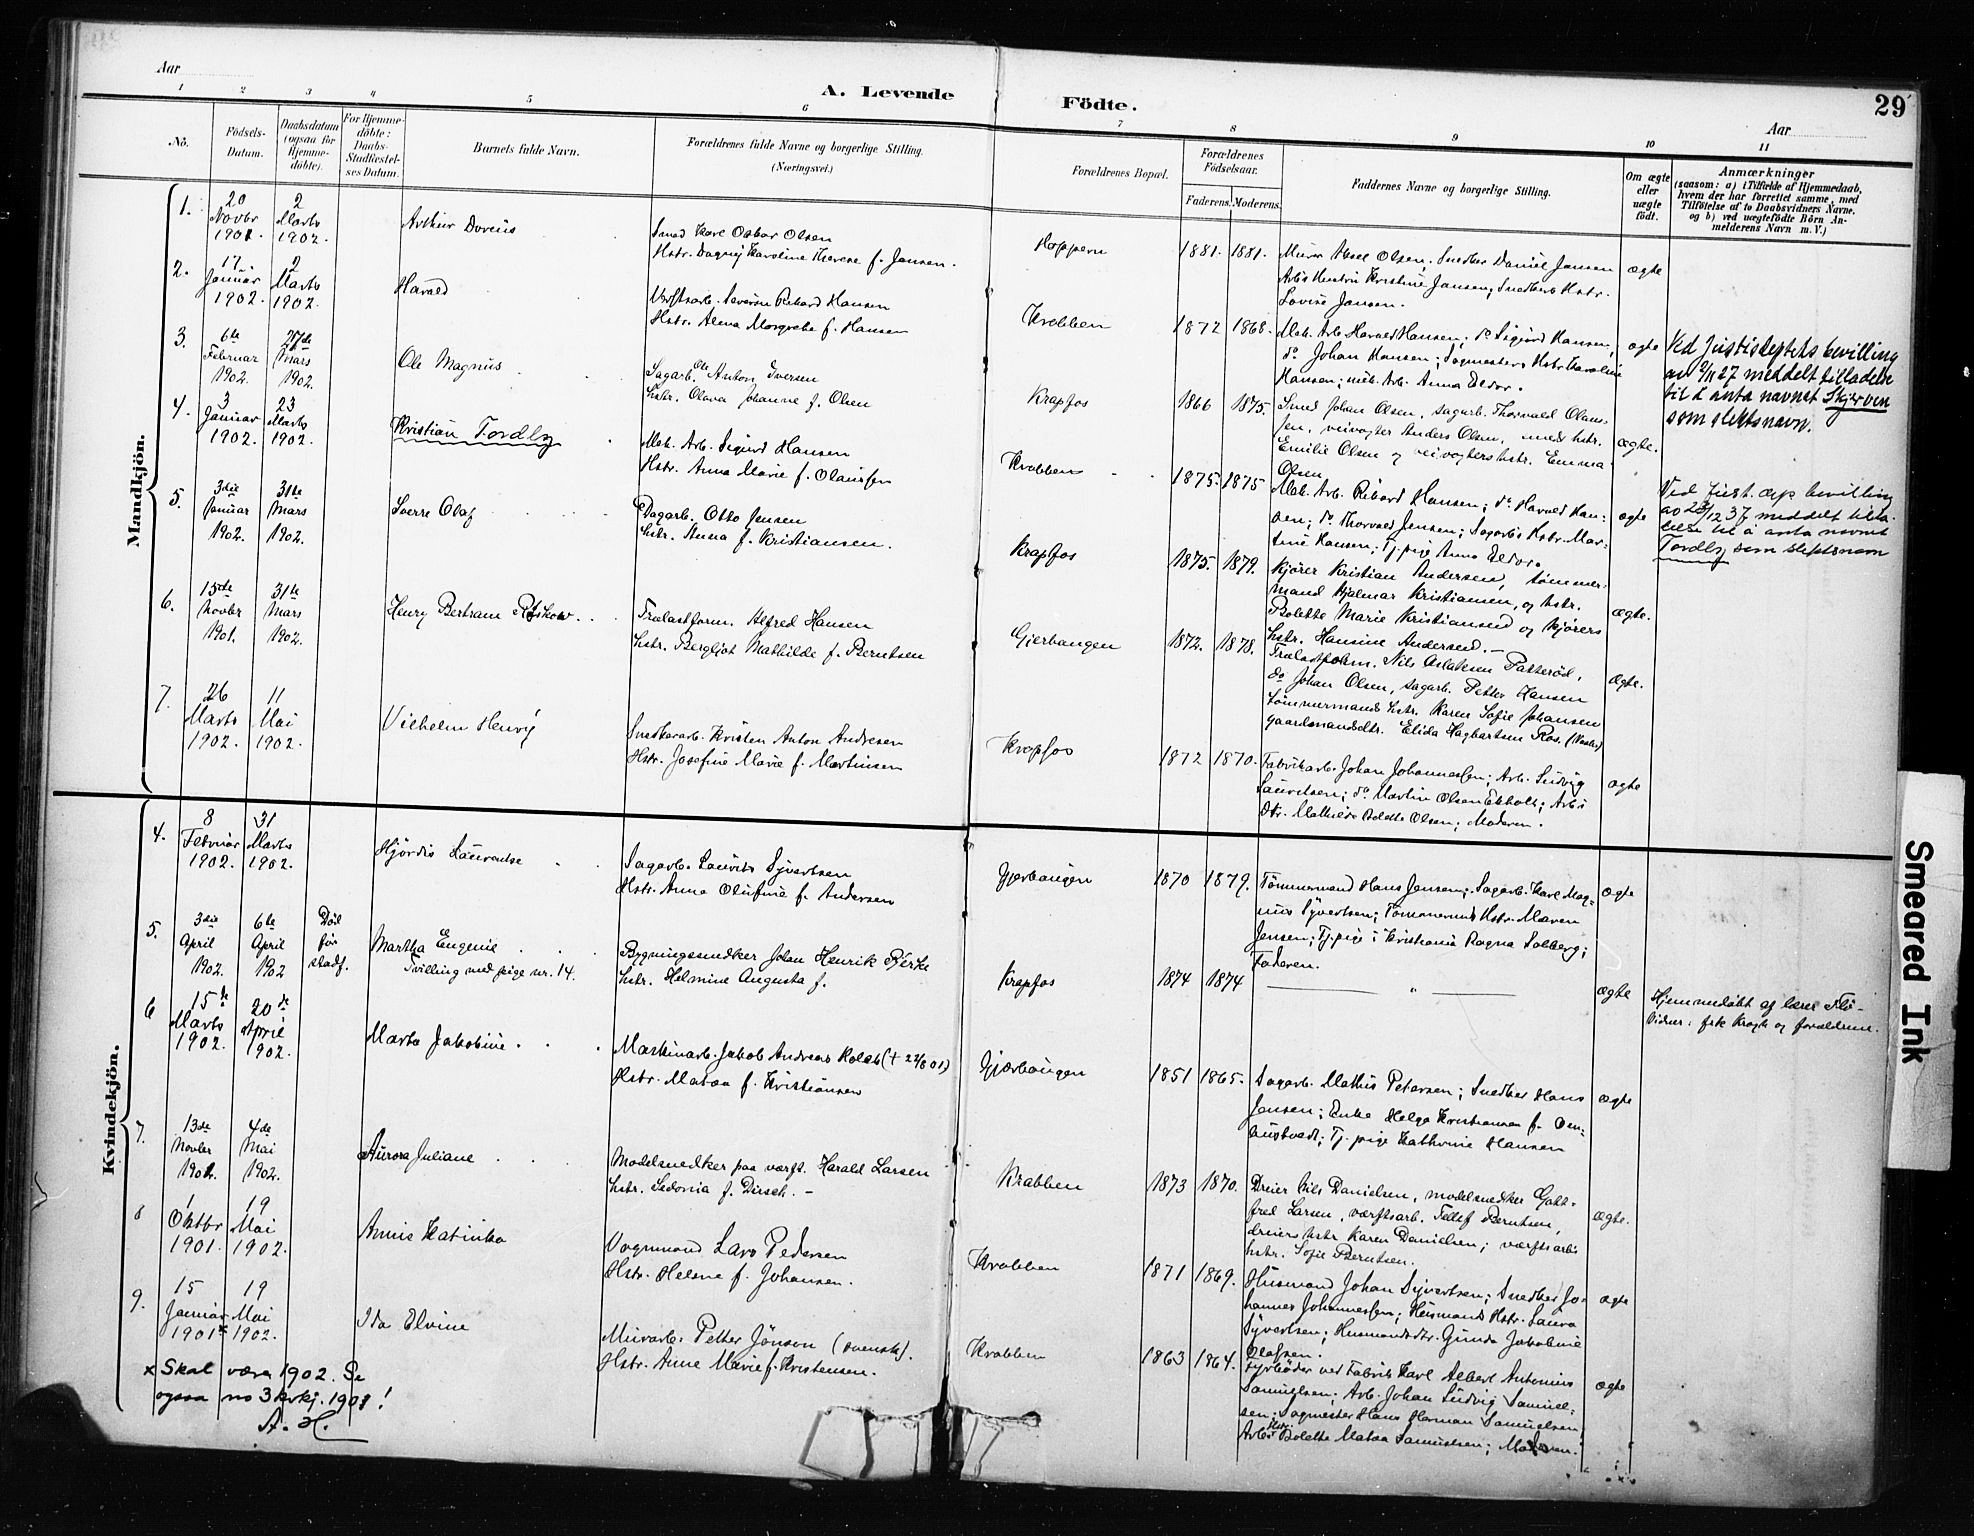 Aar
A. Levende Födte.
29
Aar
1 2 3 4 5 6 7 8 9 10 11
No.
Födsels-Datum.
Daabsdatum (ogsaa for Hjemme-døbte).
For Hjemme-døbte: Daabs-Stadfæstel-ses Datum.
Barnets fulde Navn.
Forældrenes fulde Navne og borgerlige Stilling.
(Næringsvei.)
Forældrenes Bopæl.
Forældrenes Födselsaar.
Faderens. Moderens.
Faddernes Navne og borgerlige Stilling.
Om ægte eller uægte födt.
Anmærkninger
(saasom: a) i Tilfælde af Hjemmedaab,
hvem der har forrettet samme, med
Tilføielse af to Daabsvidners Navne.
og b) ved uægtefødte Børn An-
melderens Navn m. V.)
Mandkjön.
1. 20 Novbr 1901. 2 Marts 1902.
Arthur Doreus
Smed Karl Oskar Olsen
Hstr. Dagny Karoline Therese f. Jansen.
Koppern 1881. 1881.
Murer Aksel Olsen; Snedker Daniel Jansen
Arb's Hustru Kristine Jansen; Snedkers Hstr.
Lovise Jansen.
ægte
2. 17. Januar 1902. 2 Marts 1902.
Harald
Værftsarb. Severin Rikard Hansen
Hstr. Alma Margrethe f. Hansen
Krabben 1872 1868.
Mek. Arb. Harald Hansen; do Sigurd Hansen,
do Johan Hansen; Sagmesters Hstr. Karoline
Hansen; mek. Arb. Anna
ægte
3. 6te Februar 1902. 27de Mars 1902.
Ole Magnus
Sagarb. Ole Anton Iversen
Hstr. Olava Johanne f. Olsen
Krapfos 1866 1875.
Smed Johan Olsen, sagarb. Thorvald Olaus-
sen, veivogter Anders Olsen, smeds hstr.
Emilie Olsen og veivogters hstr. Emma
Olsen
ægte.
Ved Justisdeptets bevilling
av 2/11 27 meddelt tilladelse
til å anta navnet Skjerven
som slektsnavn.
4. 3 Januar 1902. 23 Marts 1902.
Kristian Tordly
Mek. Arb. Sigurd Hansen
Hstr. Anna Marie f. Olaussen
Krabben 1875. 1875
Mek. Arb. Rikard Hansen; do Harald Han-
sen; do Thorvald Jensen; Sagarb's Hstr. Mar-
tine Hansen; Tj. pige Anna
ægte
Ved Just. deps bevilling
av 23/12 37 meddelt tilla-
telse til å anta navnet
Tordly som slektsnavn
5. 3die Januar 1902. 31te Mars 1902.
Sverre Olaf
Dagarb. Otto Jensen
hstr. Anna f. Kristiansen.
Krapfos 1875. 1879.
Kjører Kristian Andersen, tømmer-
mand Hjalmar Kristiansen, og hstr.
Bolette Marie Kristiansen og kjørers
hstr. Hansine Andersen. –
ægte.
6. 15de Novbr 1901. 31te Mars 1902.
Henry Bertram
Trælastform. Alfred Hansen
hstr. Bergljot Mathilde f. Berntsen
Gjerbangen 1872. 1878.
Trælastform. Nils Aslaksen Patterød,
do Johan Olsen, sagarb. Petter Hansen
tømmermands hstr. Karen Sofie Johansen
gaardmandsdtr. Elida Hagbartsen Ros.
ægte.
7. 26 Marts 1902. 11 Mai 1902.
Vilhelm Henry
Snedkerarb. Kristen Anton Andresen
Hstr. Josefine Marie f. Martinsen
Krapfos 1872 1870.
Fabrikarb. Johan Johannessen; Arb. Ludvig
Lauritsen; do Martin Olsen Ekholt; Arb's
Dtr. Mathilde Bolette Olsen; Moderen.
ægte
Kvindekjön.
4. 8 Februar 1902. 31 Marts 1902.
Hjördis Laurentze
Sagarb. Laurits Syvertsen
Hstr. Anna Olufine f. Andersen
Gjerbangen 1870 1879.
Tömmermand Hans Jensen; Sagarb. Karl Mag-
nus Syvertsen; Tömmermands Hstr. Maren
Jensen; Tj. pige i Kristiania Ragna Solberg;
Faderen.
ægte
5. 3die April 1902. 6te April 1902 Död før stadf.
Martha Eugenie
Tvilling med pige nr. 14.
Bygningssnedker Johan Henrik Berke
hstr. Helmine Augusta f.
Krapfos 1874 1874
— " —
ægte
Hjemmedøbt af lærer
Vidner: frk Krogh og forældrene.
6 15de Marts 1902. 20de April 1902.
Marta Jakobine
Maskinarb. Jakob Andreas (+ 22/8 01)
Hstr. Matea f. Kristiansen
Gjærbangen 1851 1865.
Sagarb. Mathis Petersen; Snedker Hans
Jensen; Enke Helga Kristiansen f.
Tj. pige Kathrine Hansen
ægte
7. 13de Novber 1901. 4de Mai 1902.
Aurora Juliane
Modelsnedker paa værft. Harald Larsen
hstr. Sedonia f. Dirsch. –
Krabben 1873 1870.
Dreier Nils Danielsen, modelsnedker Gott-
fred Larsen, værftsarb. Berntsen,
dreiers hstr Karen Danielsen; værftsarb's
hstr. Sofie Berntsen.
ægte.
8 1 Oktbr 1901. 19 Mai 1902.
Annie Katinka
Vognmand Lars Pedersen
Hstr. Helene f. Johansen.
Krabben 1871 1869.
Husmand Johan Syvertsen; Snedker Jo-
hannes Johannessen; Husmands Hstr. Laura
Syvertsen; Husmandsdtr. Gunda Jakobine
Olafsen.
ægte
9. 15 Januar 1901x 19 Mai 1902.
Ida Elvine
Murarb. Petter Jönson (svensk).
Hstr. Anne Marie f. Kristensen.
Krabben 1863 1864.
Fyrböder ved Fabrik Karl Albert Antonius
Samuelsen; Arb. Johan Ludvig Samuel-
sen; Sagmester Hans Herman Samuelsen,
Arb's Hstr. Bolette Matea Samuelsen; Moderen.
ægte
x Skal være 1902. Se
ogsaa no 3 kvkj. 1901!
A. H.
Smeared Ink